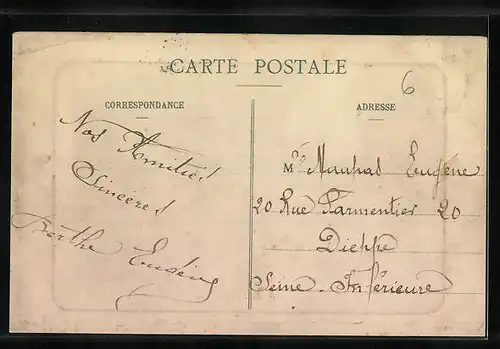 CARTE POSTALE
6
CORRESPONDANCE
ADRESSE
Nos Amitiés
Sincères
Berthe Eugène
Mr Mauhas Eugène
20 Rue Parmentier 20
Dieppe
Seine-Inférieure